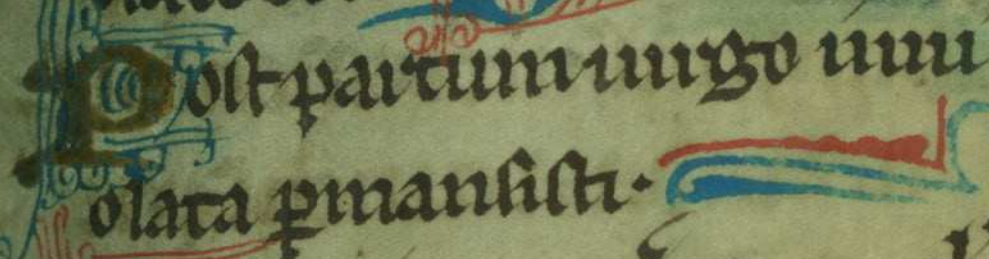 Post partum uirgo inui
olata ꝑmansisti·